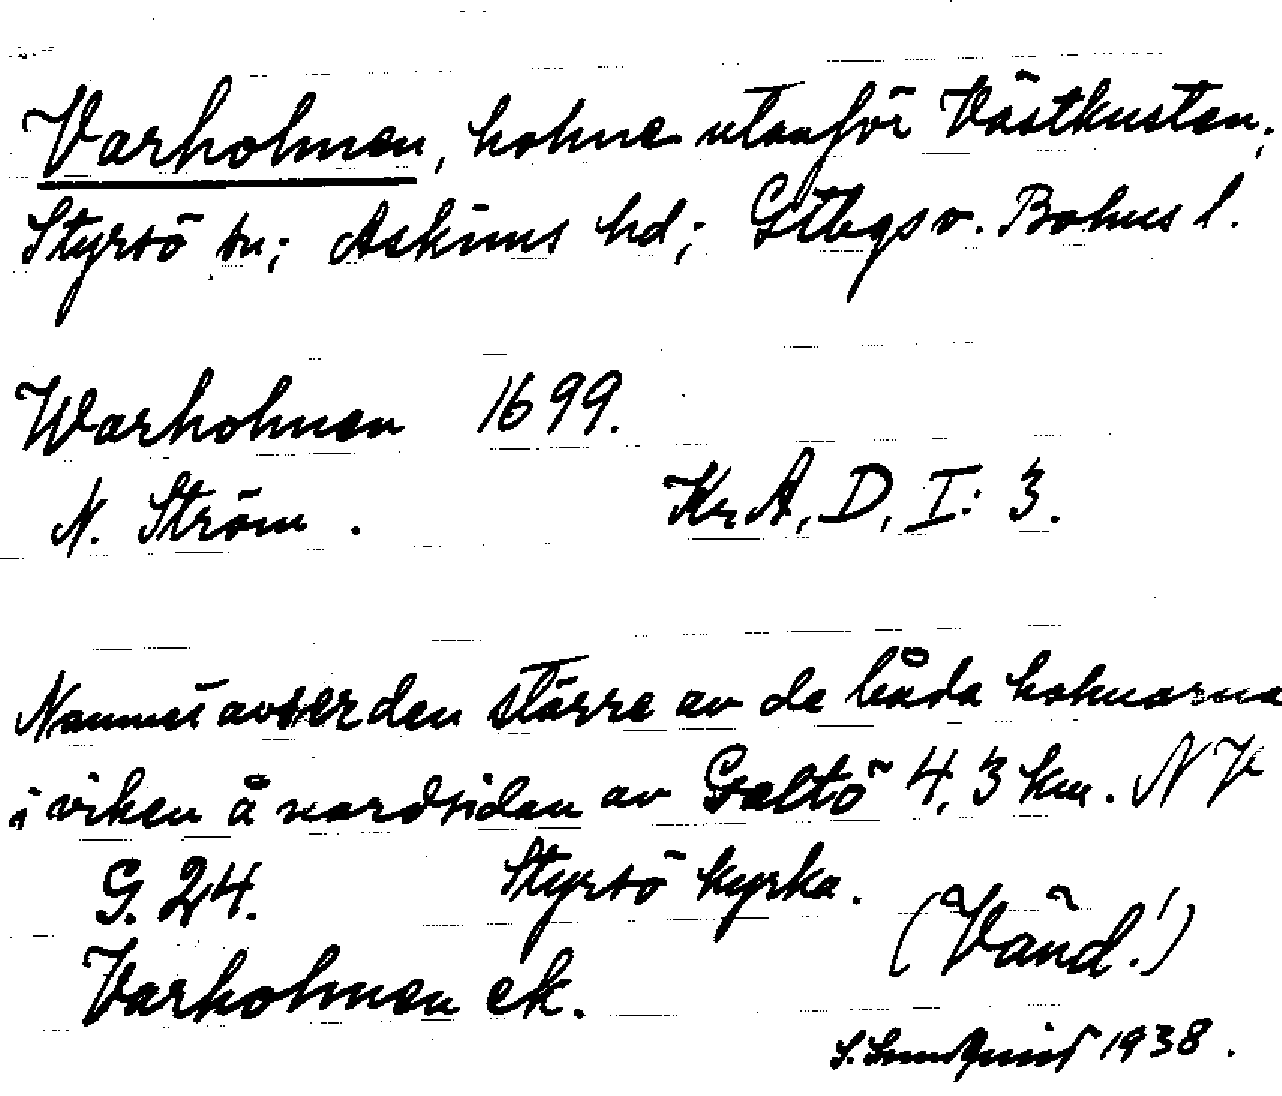 Varholmen, holme utanför Västkusten;
Styrsö sn; Askims hd; Gtbgs o. Bohus l.
Warholmen 1699.
N. Ström. Kr.A, D, I: 3.
Namnet avser den större av de båda holmarna
i viken å nordsidan av Galtö 4,3 km. NV
G. 24. Styrsö kyrka.
(Vänd!)
Varholmen ek.
S. Lundquist 1938.